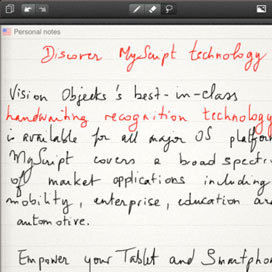 Personal notes
Discover MyScript technology
Vision Objects's best-in-class
handwriting recognition technology
is available for all major OS platfor
MyScript covers a broad spectr
of market applications including
mobility, enterprise, education an
automotive.
Empower your Tablet and Smartpho